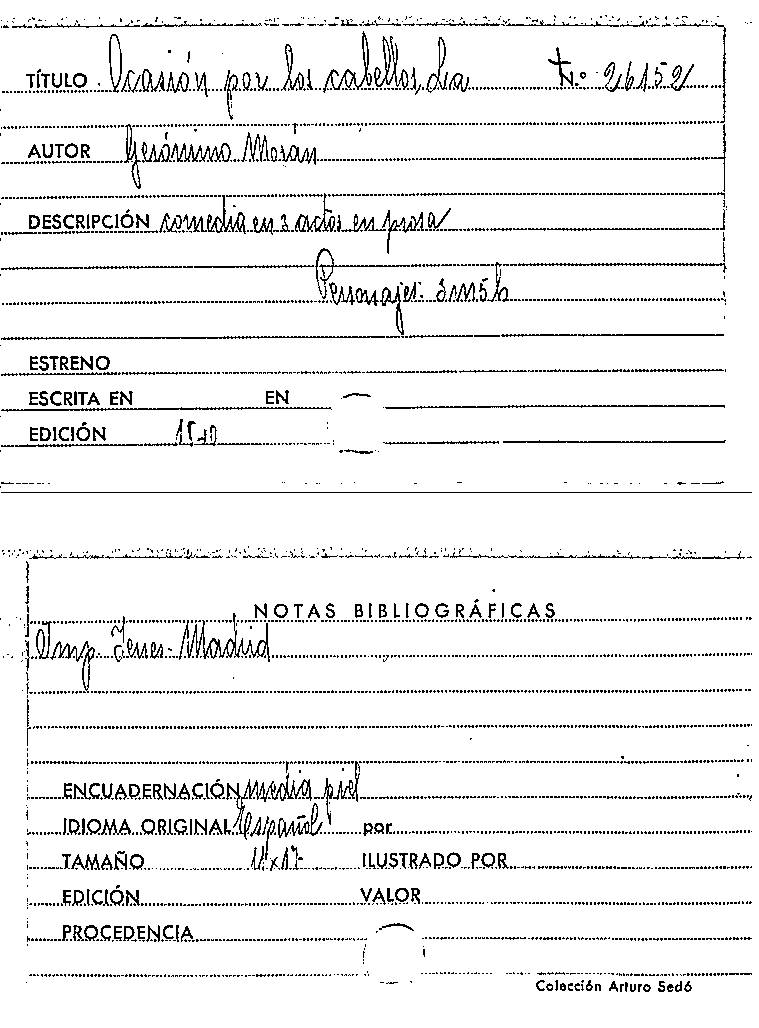 TÍTULO Ocasión por los cabellos, La N.º 26152
AUTOR Gerónimo Morán
DESCRIPCIÓN comedia en 3 actos en prosa
Personajes. 3m5h
ESTRENO
ESCRITA EN EN
EDICIÓN
NOTAS BIBLIOGRÁFICAS
Imp. Yenes. Madrid
ENCUADERNACIÓN media piel
IDIOMA ORIGINAL Español por
TAMAÑO ILUSTRADO POR
EDICIÓN VALOR
PROCEDENCIA
Colección Arturo Sedó